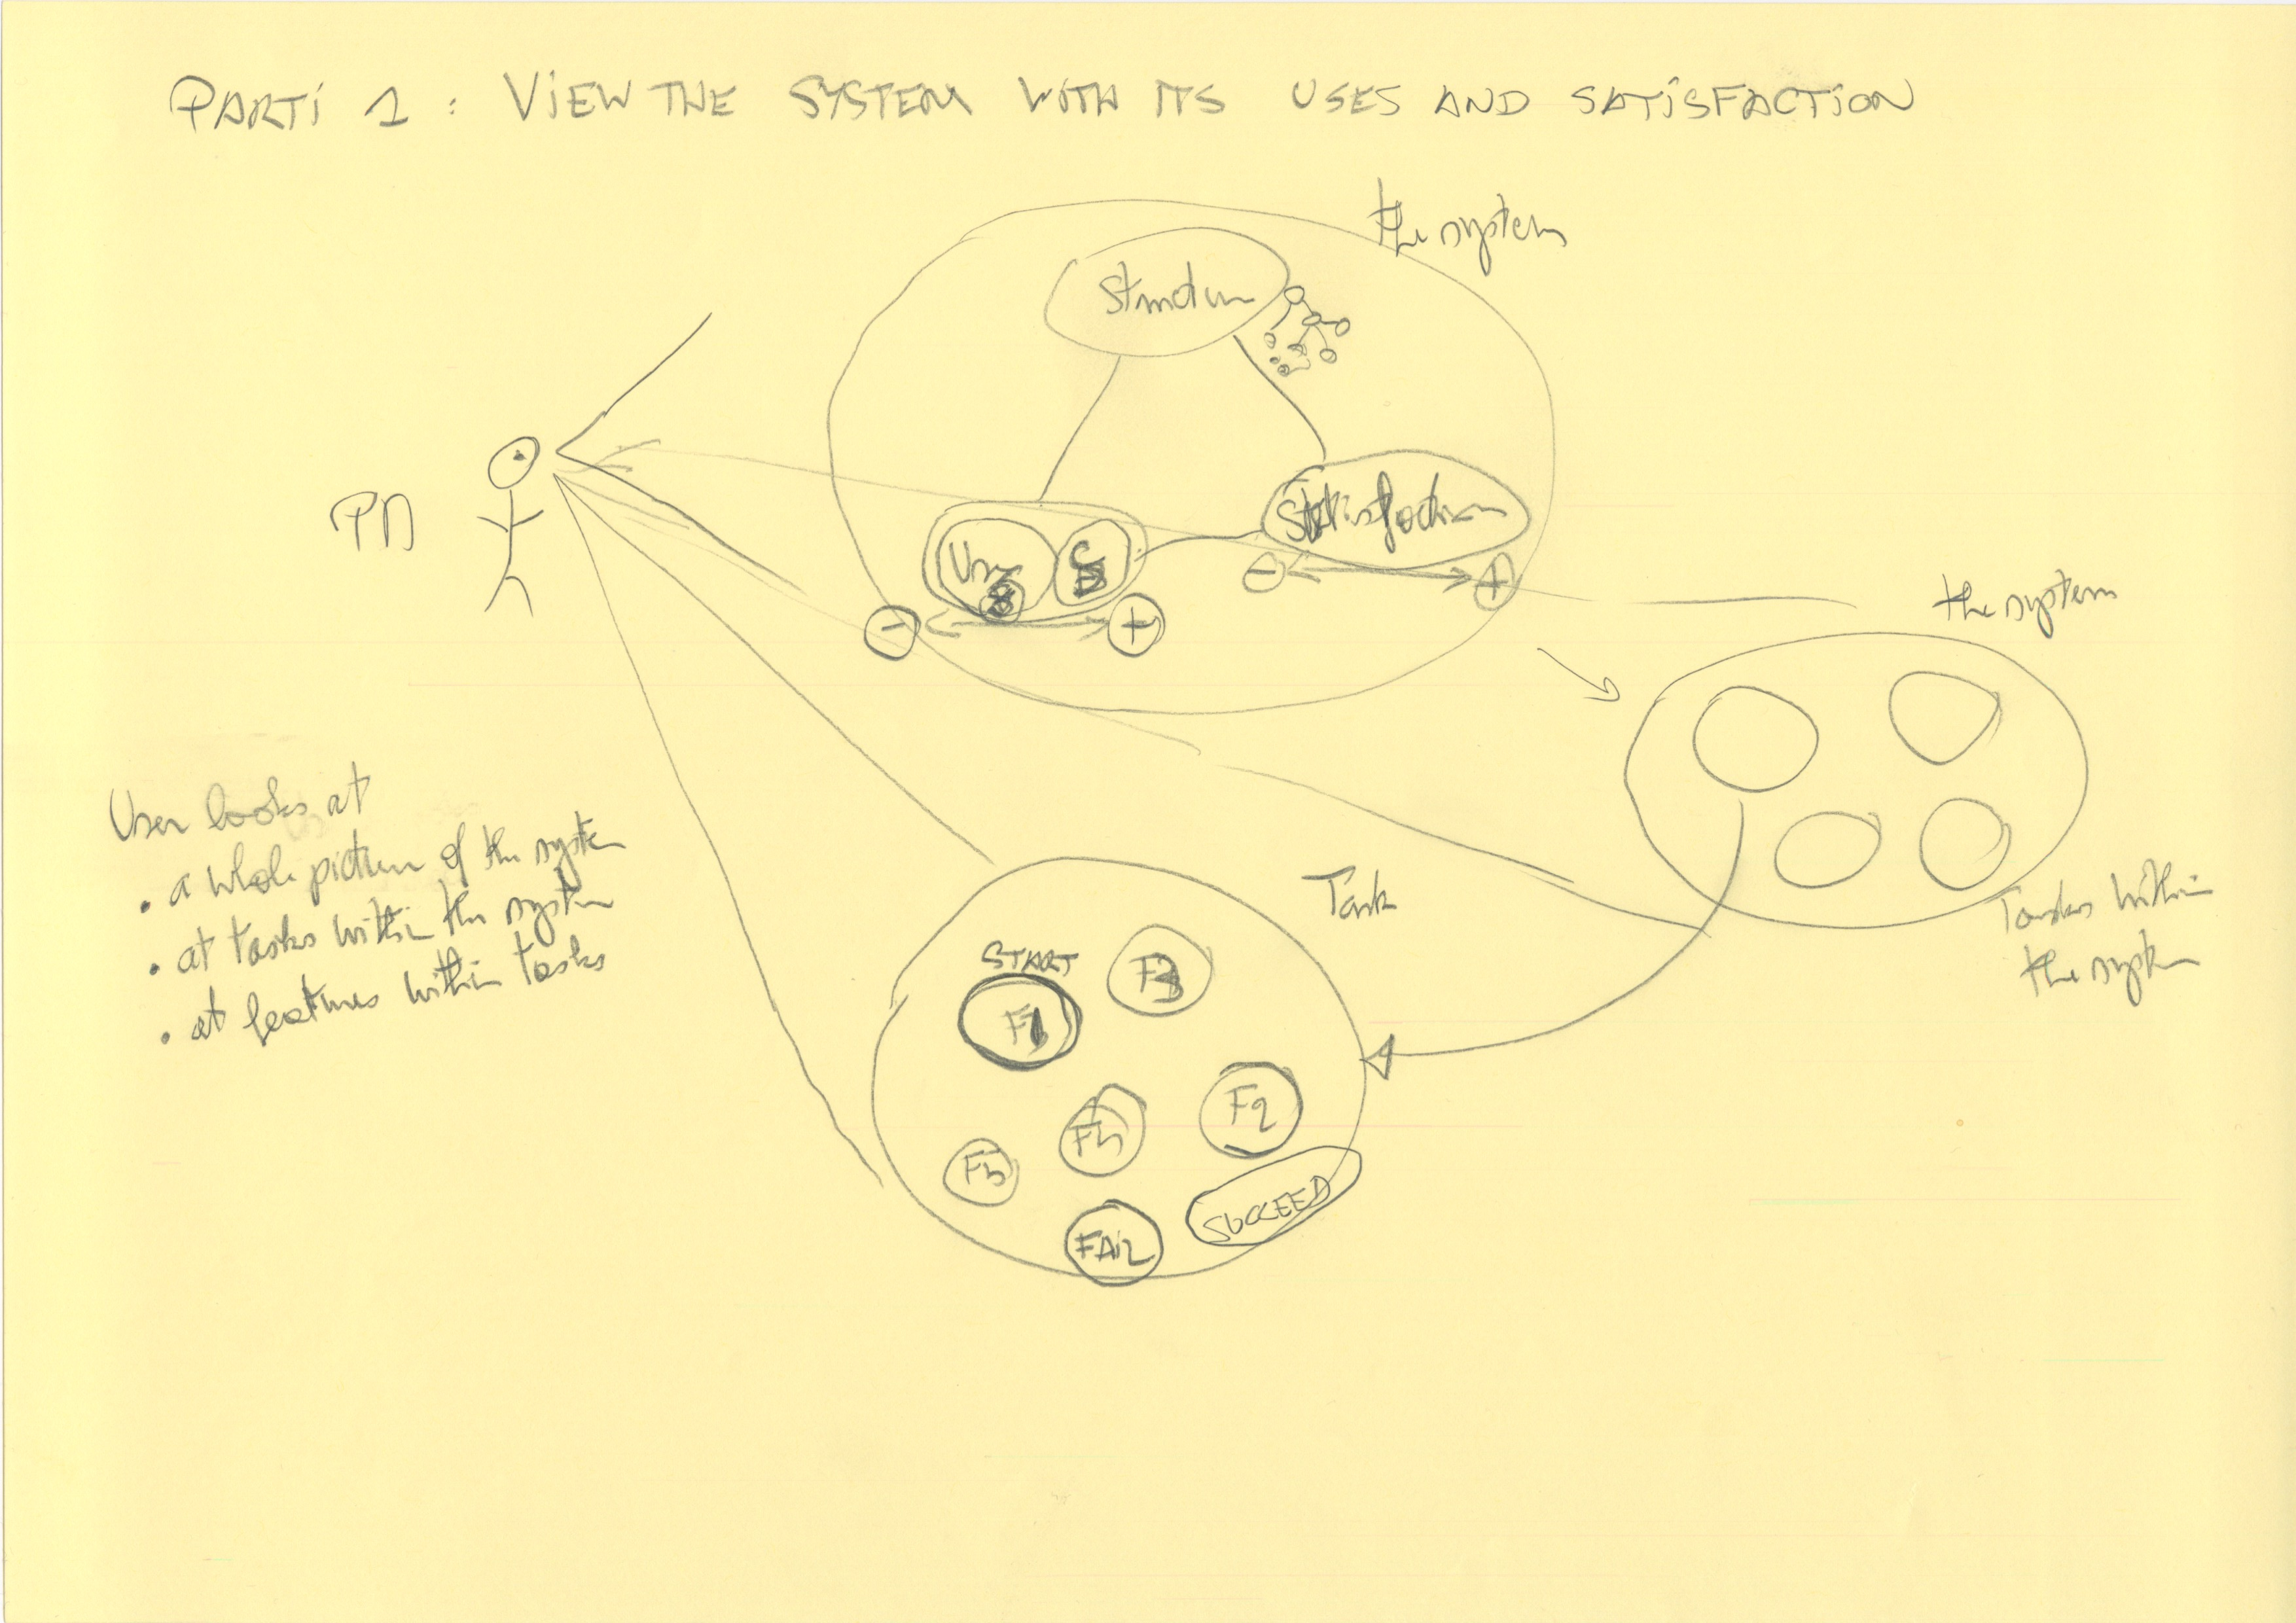 PARTI 1 : VIEW THE SYSTEM WITH ITS USES AND SATISFACTION
the system
Structure
PM
Satisfaction
Use
- +
- +
the system
User looks at
• a whole picture of the system
• at tasks within the system
• at features within tasks
Task
Tasks within
the system
START
F3
F1
F2
F5
SUCCEED
FAIL